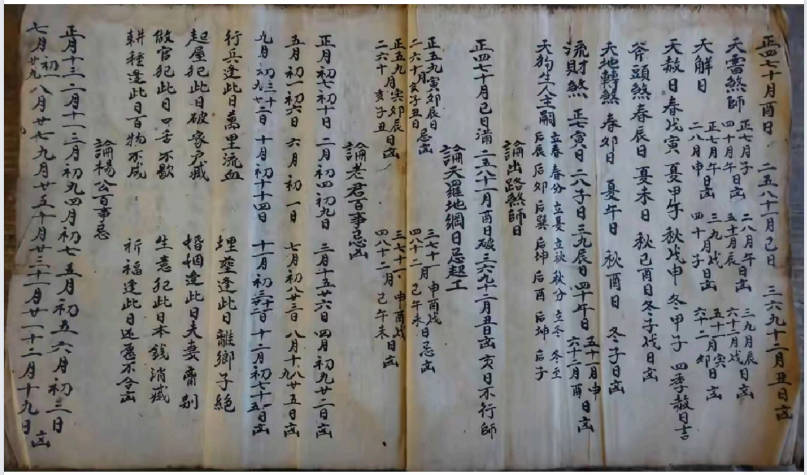 正四七十月酉日 二五八十一月巳日 三六九十二月丑日凶
天雷煞師 正七月子 四十月午日凶 二八月午日 五十月辰 三九月辰日 六十二月戌日凶
天解日 正七月午日 二八月申日凶 三九月戌 四十月子 五十一月寅 六十二月卯日凶
天赦日春戊寅 夏甲午 秋戊申 冬甲子 四季赦日吉
斧頭煞 春辰日 夏未日 秋己酉日冬子戌日凶
天地轉煞 春卯日 夏午日 秋酉日 冬子日凶
流財煞 正七寅日 二八子日三九辰日四十午日 五十一月申 六十二月酉日凶
天狗生人主嗣 立春 春分 立夏 立秋 秋分 立冬 冬至
后辰 后卯 后巽 后坤 后酉 后坤 后子
論出路煞師日
正四七十月巳日滿 二五八十一月酉日破 三六九十二月丑日凶 亥日不行師
論天羅地網日忌起工
正五九寅卯辰日 二六十月亥子丑日忌凶 三七十一月申酉戌 四八十二月巳午未日忌凶
正五九月寅卯辰 二六十月亥子丑日凶 三七十一月申酉戌 四八十二月巳午未日凶
論老君百事忌凶
正月初七初十日 二月初四初九日 三月十五廿六日 四月初九廿二日凶
五月初一初六日 六月初一日 七月初八廿三日 八月十八廿五日凶
九月初三十二日 十月初十十四日 十一月初三廿二日 十二月初七十五日凶
行兵逢此日萬里流血 埋塟逢此日離鄉子絕
起屋犯此日破家尸藏 婚姻逢此日夫妻离别
做官犯此日口舌不歇 生意犯此日本錢消滅
耕種逢此日百物不成 祈福逢此日还愿不合凶
論楊公百事忌
正月十三二月十一三月初九四月初七五月初五六月初三日
七月初一廿九八月廿七九月廿五十月廿三十一月廿一十二月十九日凶